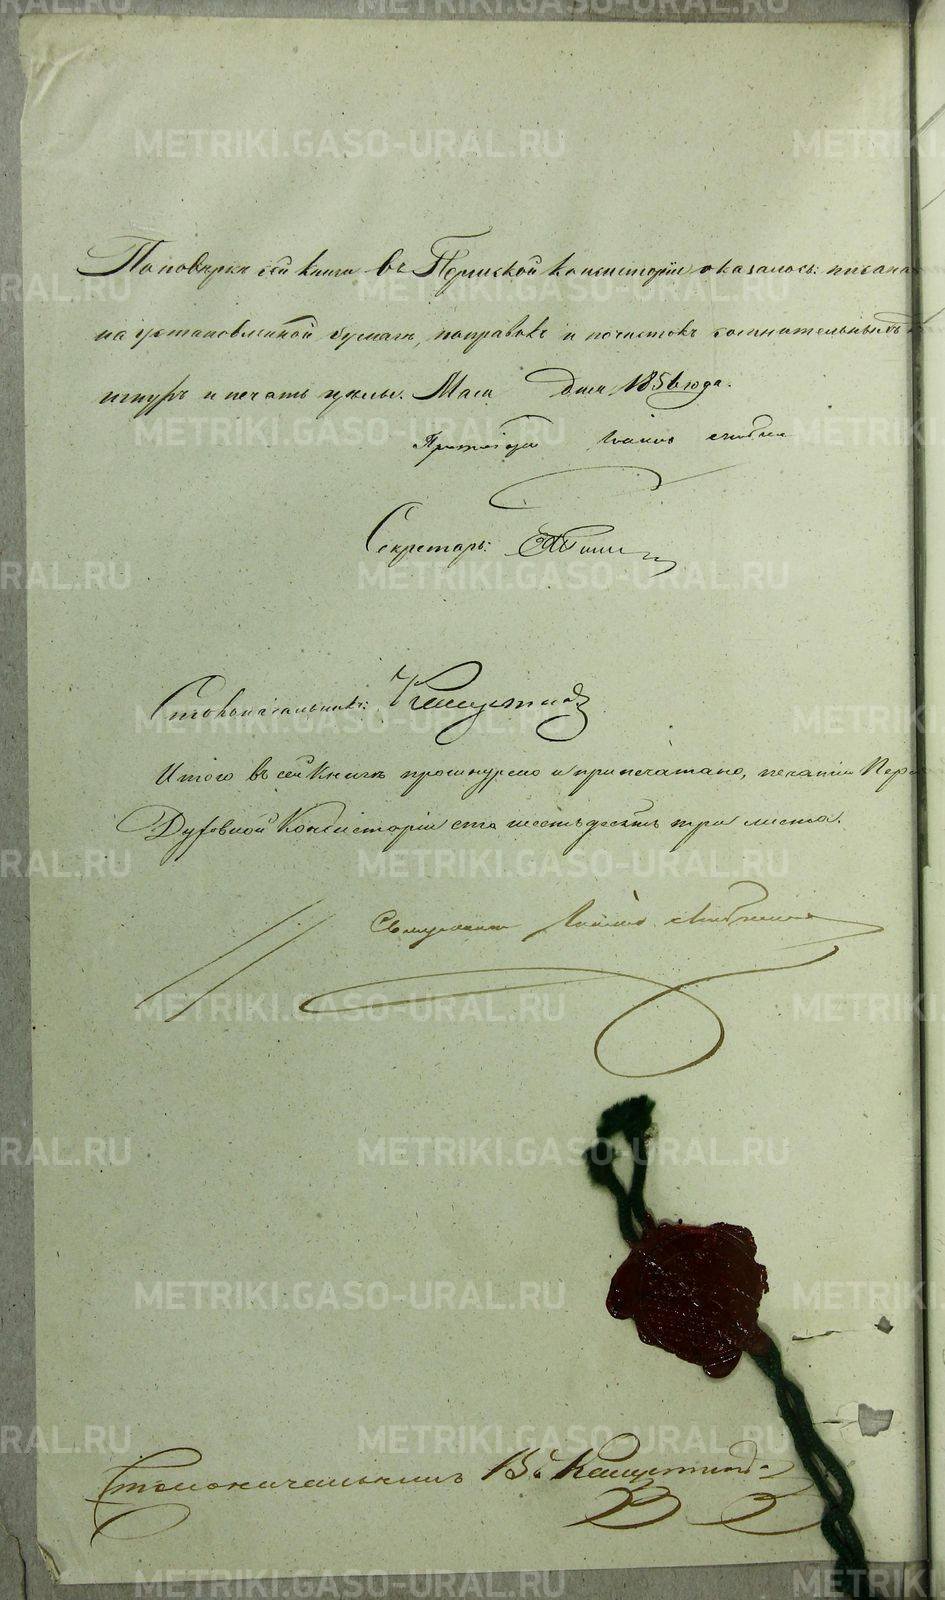 По поверке сей книги въ Пермской консисторіи оказалось: писана
на установленной бумагѣ, поправокъ и почистокъ сомнительныхъ
шнуръ и печать цѣлы. Мая дня 1856 года.
Протоіерей
Секретарь:
Столоначальникъ: Капустинъ
Итого въ сей книгѣ прошнурено и припечатано, печатію Пер
Духовной Консисторіи сто шестьдесятъ три листа.
Столоначальникъ В. Капустинъ
METRIKI.GASO-URAL.RU